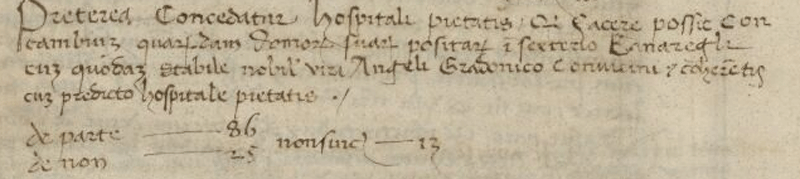 Preterea Concedatur hospitali pietatis, Qꝫ facere possit Con
cambiuꝫ quarūdam domorū suarꝫ positarꝫ ī sexterio Canaregli
cuꝫ quodaꝫ stabile nobil' viri Angeli Gradonico Convicini ⁊ coherētis
cuꝫ predicto hospitale pietatis ./
de parte —— 86
de non —— 25 non sinč — 13